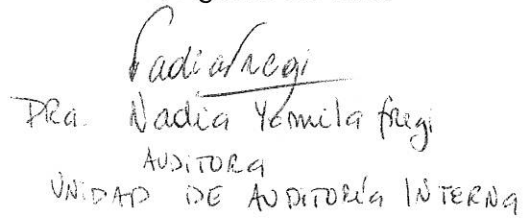 Nadia Fregi
DRa. Nadia Yamila Fregi
AUDITORa
UNIDAD DE AUDITORÍa INTERNa